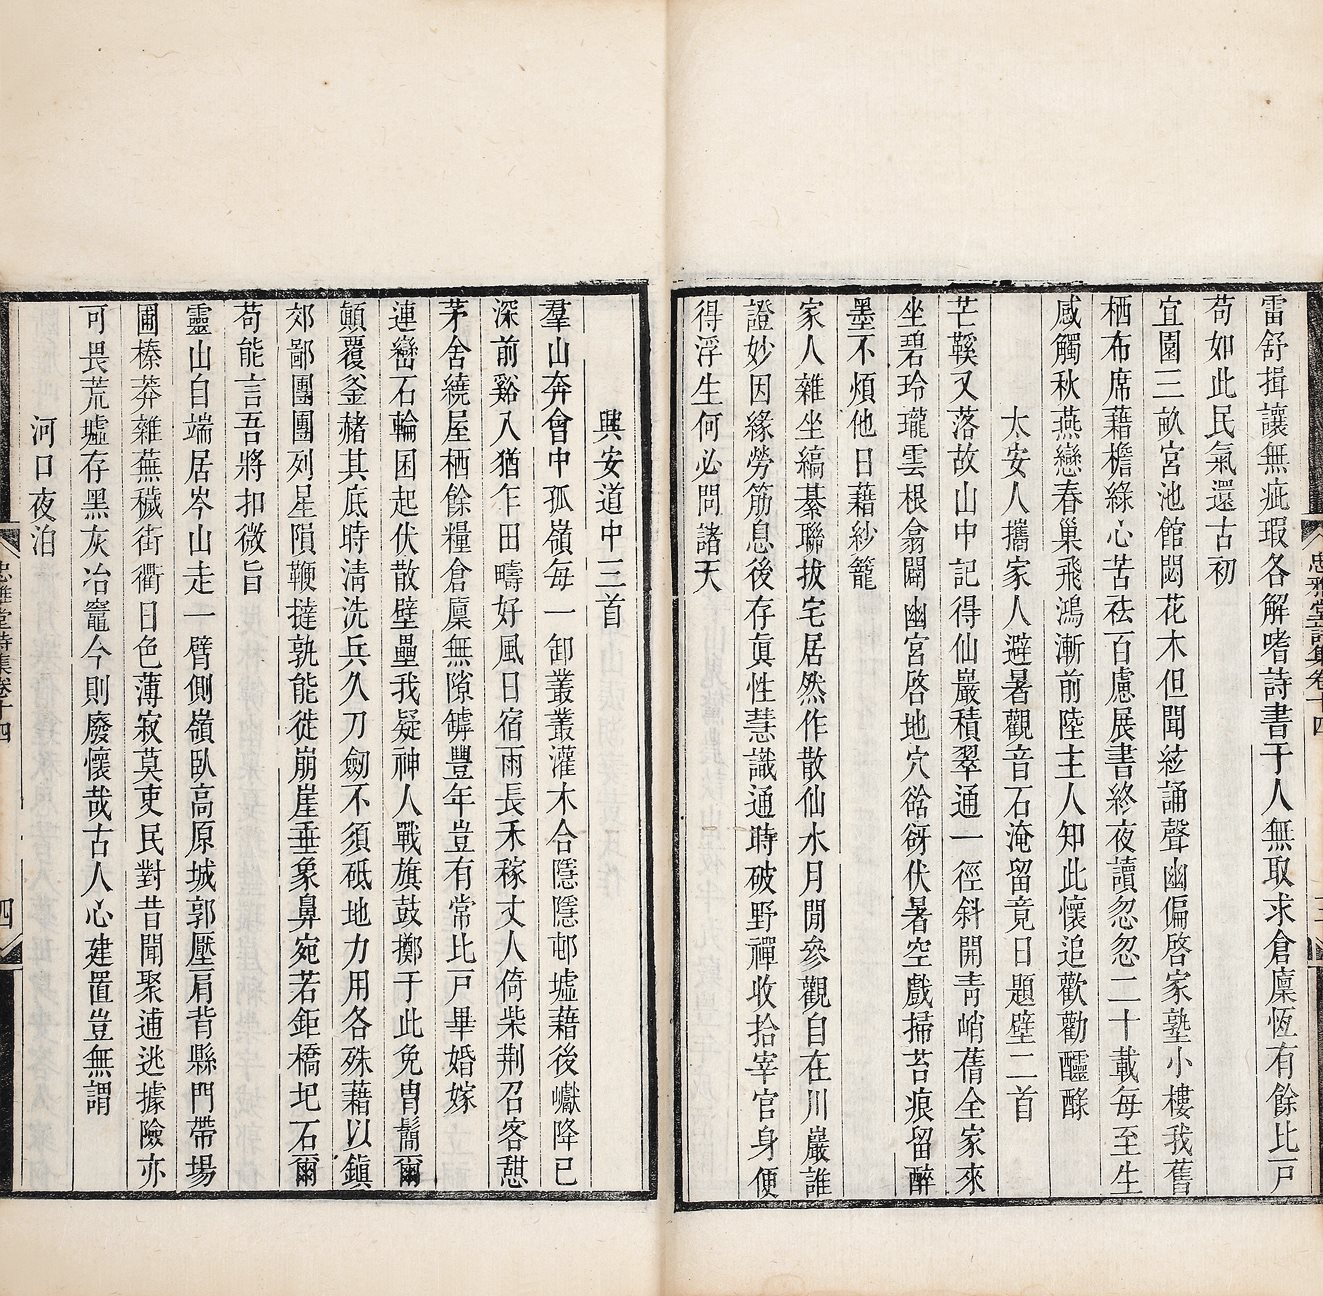 雷舒揖讓無疵瑕各解嗜詩書于人無取求倉廩恆有餘比戸
苟如此民氣還古初
宜園三畝宮池館閟花木但聞絃誦聲幽偏啓家塾小樓我舊
栖布席藉檐綠心苦祛百慮展書終夜讀忽忽二十載每至生
感觸秋燕戀春巢飛鴻漸前陸主人知此懷追歡勸醽醁
太安人攜家人避暑觀音石淹留竟日題壁二首
芒鞵又落故山中記得仙巖積翠通一徑斜開靑峭蒨全家來
坐碧玲瓏雲根翕闢幽宮啓地穴谽谺伏暑空戲掃苔痕留醉
墨不煩他日藉紗籠
家人雜坐縞綦聯拔宅居然作散仙水月閒參觀自在川巖誰
證妙因緣勞筋息後存眞性慧識通時破野禪收拾宰官身便
得浮生何必問諸天
忠雅堂詩集卷十四
興安道中三首
羣山奔會中孤嶺每一卸叢叢灌木合隱隱邨墟藉後巘降已
深前谿入猶乍田疇好風日宿雨長禾稼丈人倚柴荆召客憇
茅舍繞屋栖餘糧倉廩無隙罅豐年豈有常比戸畢婚嫁
連巒石輪囷起伏散壁壘我疑神人戰旗鼓擲于此免胄鬅爾
顚覆釜赭其底時淸洗兵久刀劒不須砥地力用各殊藉以鎭
郊鄙團團列星隕鞭撻孰能徙崩崖垂象鼻宛若鉅橋圯石爾
苟能言吾將扣微旨
靈山自端居岑山走一臂側嶺臥高原城郭壓肩背縣門帶場
圃榛莽雜蕪穢街衢日色薄寂莫吏民對昔聞聚逋逃據險亦
可畏荒墟存黑灰冶竈今則廢懷哉古人心建置豈無謂
河口夜泊
忠雅堂詩集卷十四
四